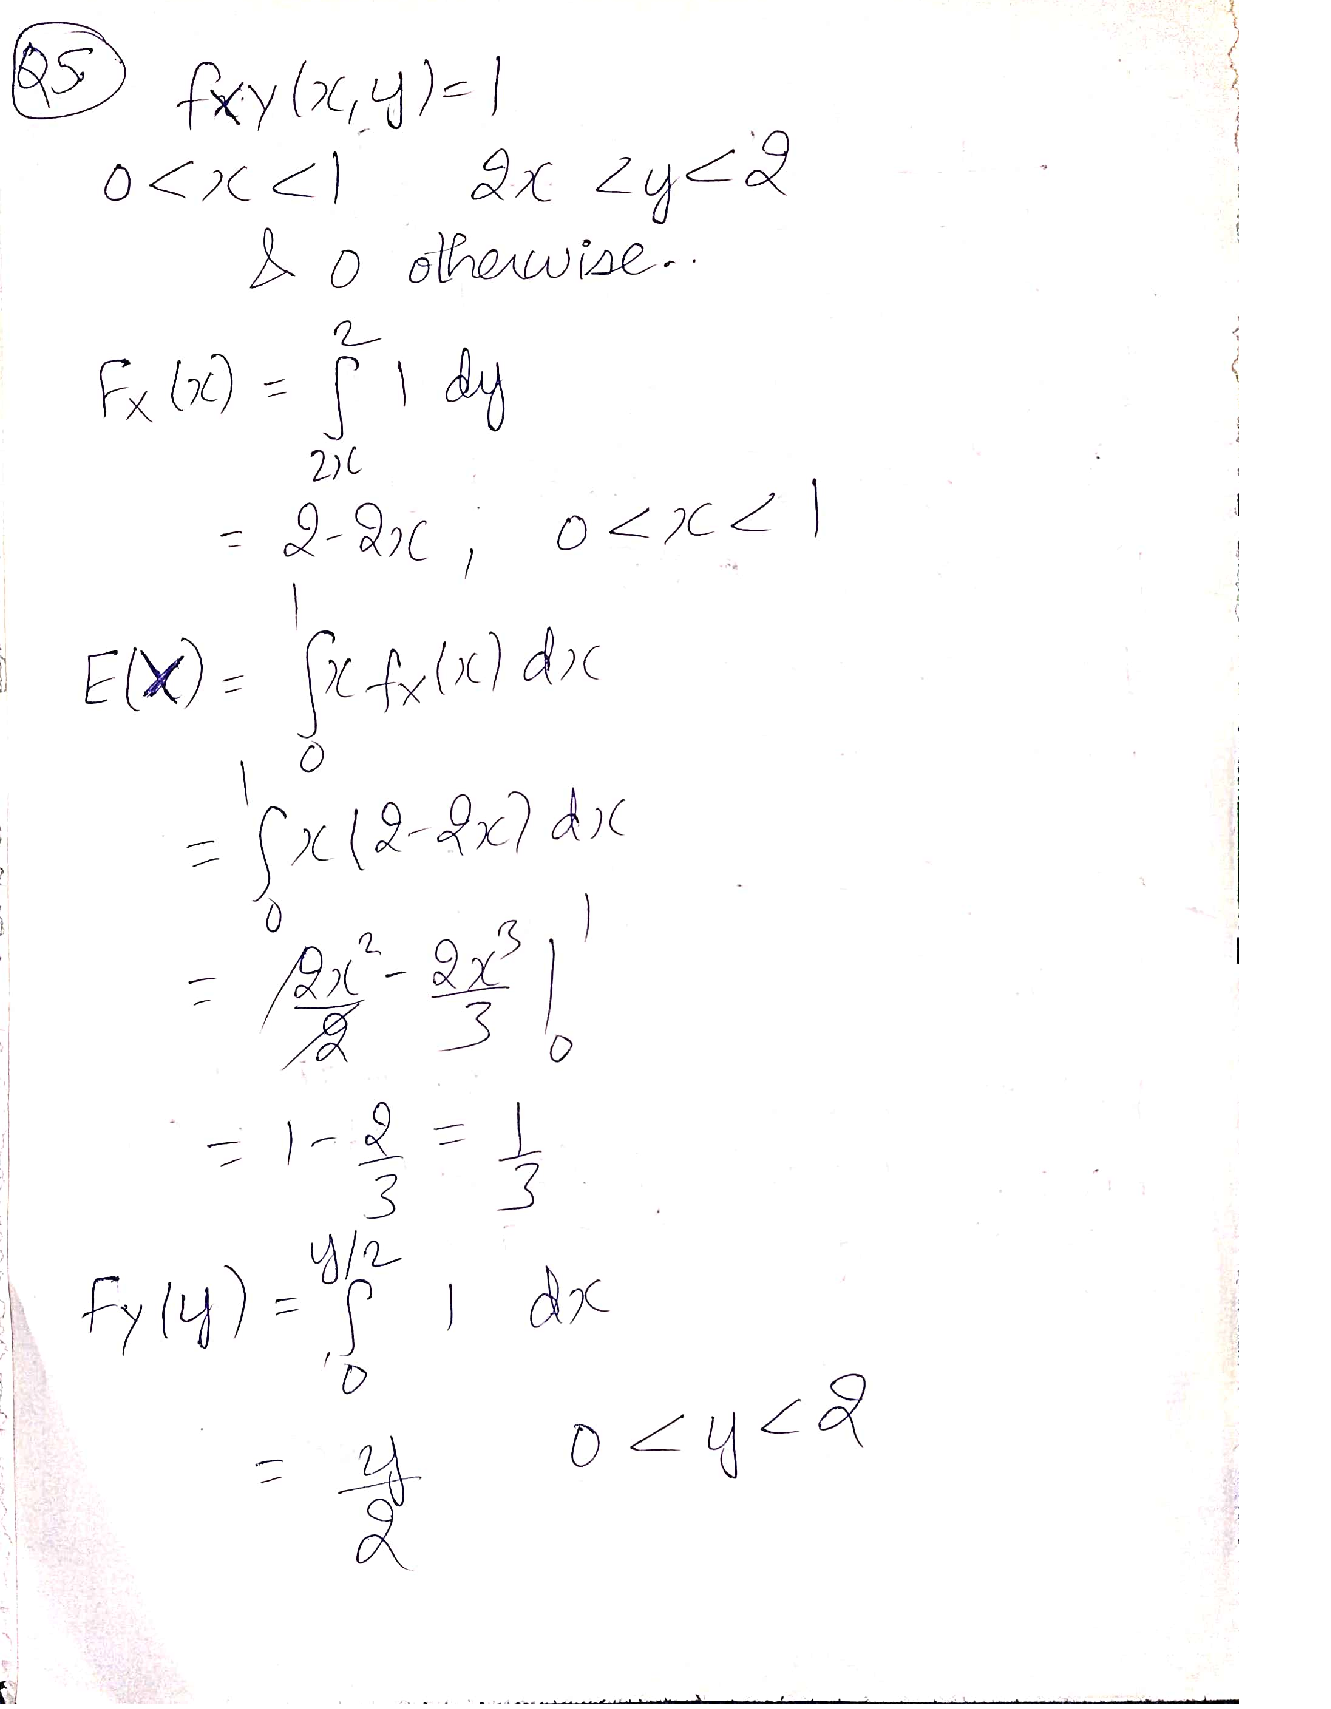 Q5
fxy(x,y)=1
0<x<1 2x<y<2
& 0 otherwise..
Fx(x) = ∫_{2x}^{2} 1 dy
= 2-2x, 0<x<1
E(X) = ∫_{0}^{1} x fx(x) dx
= ∫_{0}^{1} x(2-2x) dx
= 2x²/2 - 2x³/3 |_{0}^{1}
= 1 - 2/3 = 1/3
Fy(y) = ∫_{0}^{y/2} 1 dx
= y/2 0<y<2